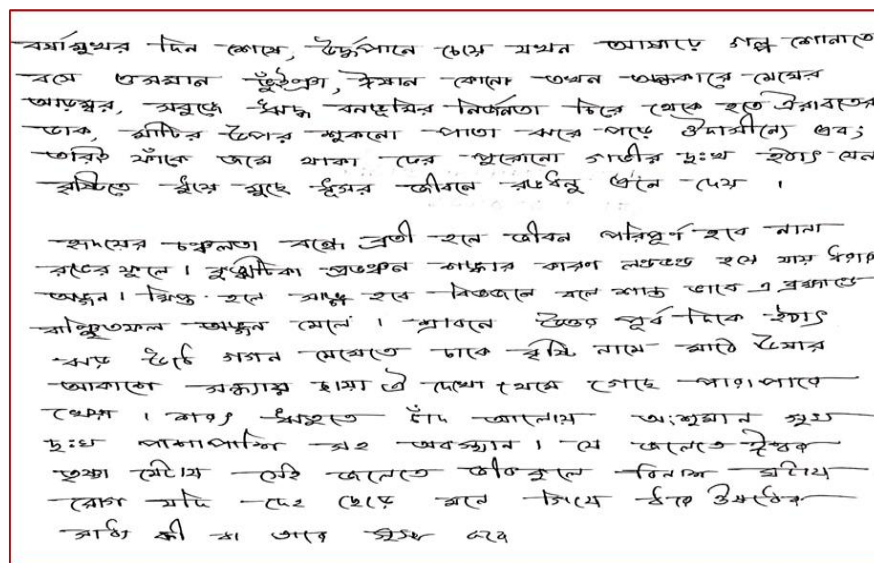 বর্ষামুখর দিন শেষে, উর্দ্ধপানে চেয়ে যখন আষাঢ়ে গল্প শোনাতে
বসে ওসমান ভুঁইঞা, ঈষান কোনে তখন অন্ধকারে মেঘের
আড়ম্বর, সবুজে ঋদ্ধ বনভূমির নির্জনতা চিরে থেকে হতে ঐরাবতের
ডাক, মাটির উপর শুকনো পাতা ঝরে পড়ে ঔদাসীন্যে এবং
তারই ফাঁকে জমে থাকা ঢের পুরোনো গভীর দুঃখ হঠাৎ যেন
বৃষ্টিতে ধুয়ে মুছে ধূসর জীবনে রঙধনু এনে দেয় ।
হৃদয়ের চঞ্চলতা বন্ধে ব্রতী হলে জীবন পরিপূর্ণ হবে নানা
রঙের ফুলে । কুজ্ঝটিকা প্রভঞ্জন শঙ্কার কারণ লণ্ডভণ্ড হয়ে যায় ধরার
অঙ্গন । ক্ষিপ্ত হলে সাঙ্গ হবে বিজ্ঞজনে বলে শান্ত ভাবে এ ব্রহ্মাণ্ডে
বাঞ্ছিতফল অর্জন মেলে । শ্রাবনে উত্তর পূর্ব দিকে হঠাৎ
ঝড় উঠে গগন মেঘেতে ঢাকে বৃষ্টি নামে মাঠে উষার
আকাশে সন্ধ্যায় ছায়া ঐ দেখো থেমে গেছে পারাপারে
খেয়া । শরৎ ঋতুতে চাঁদ আলোয় অংশুমান সুখ
দুঃখ পাশাপাশি সহ অবস্থান । যে জলেতে ঈশ্বর
তৃষ্ণা মেটায় সেই জলেতে জীবকুলে বিনাশ ঘটায়
রোগ যদি দেহ ছেড়ে মনে গিয়ে ধরে ঔষধের
সাধ্য কী বা তারে সুস্থ করে